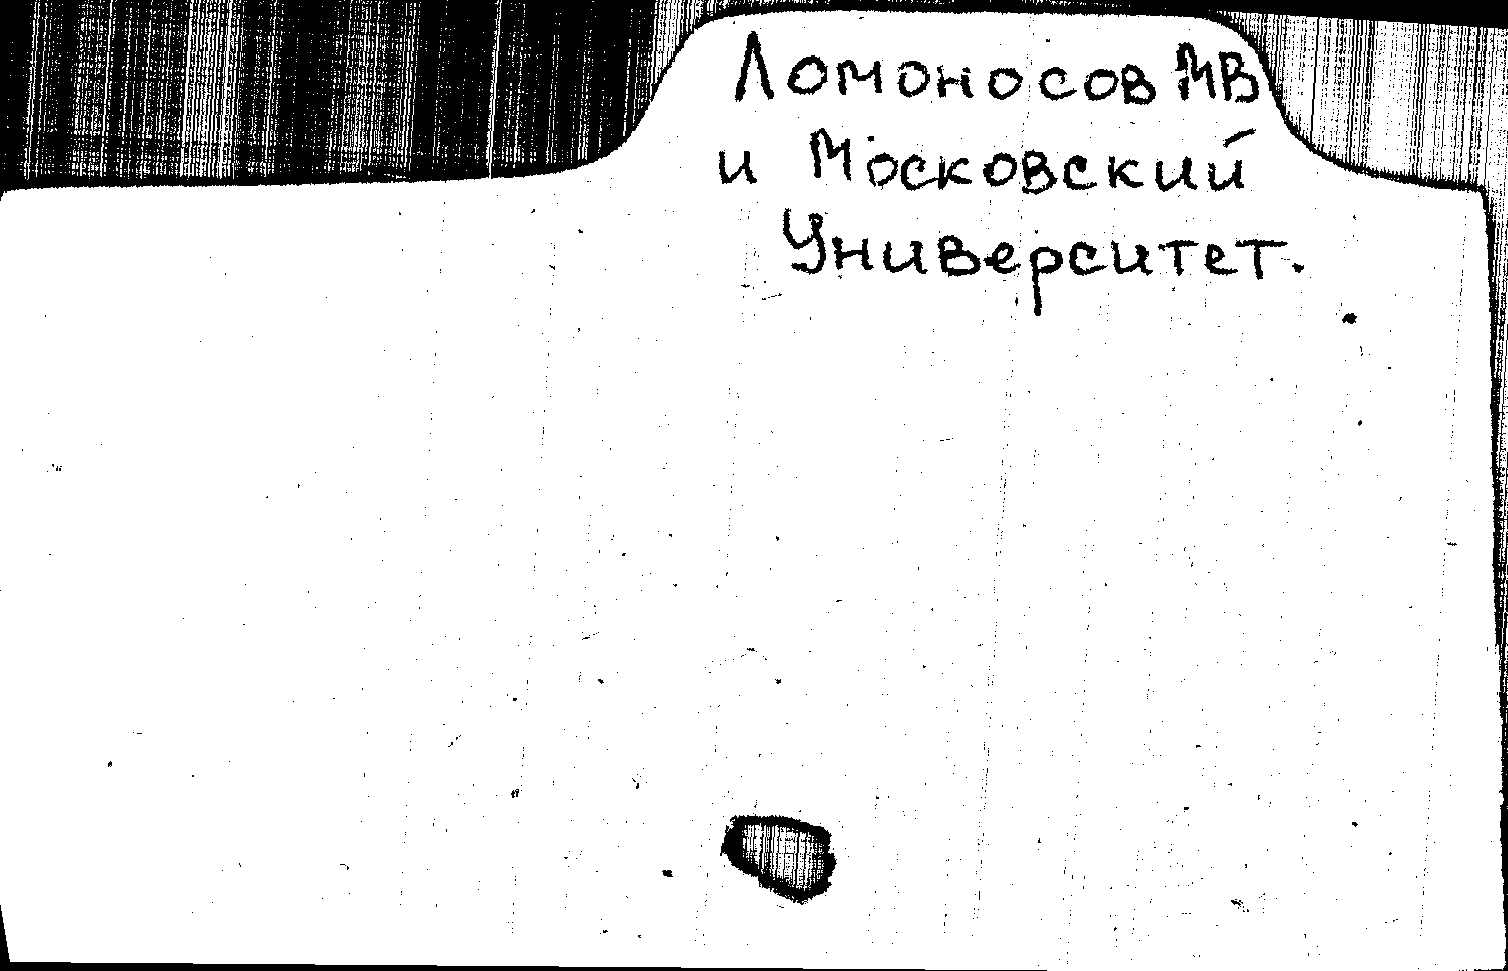 Ломоносов МВ
и Московский
Университет.